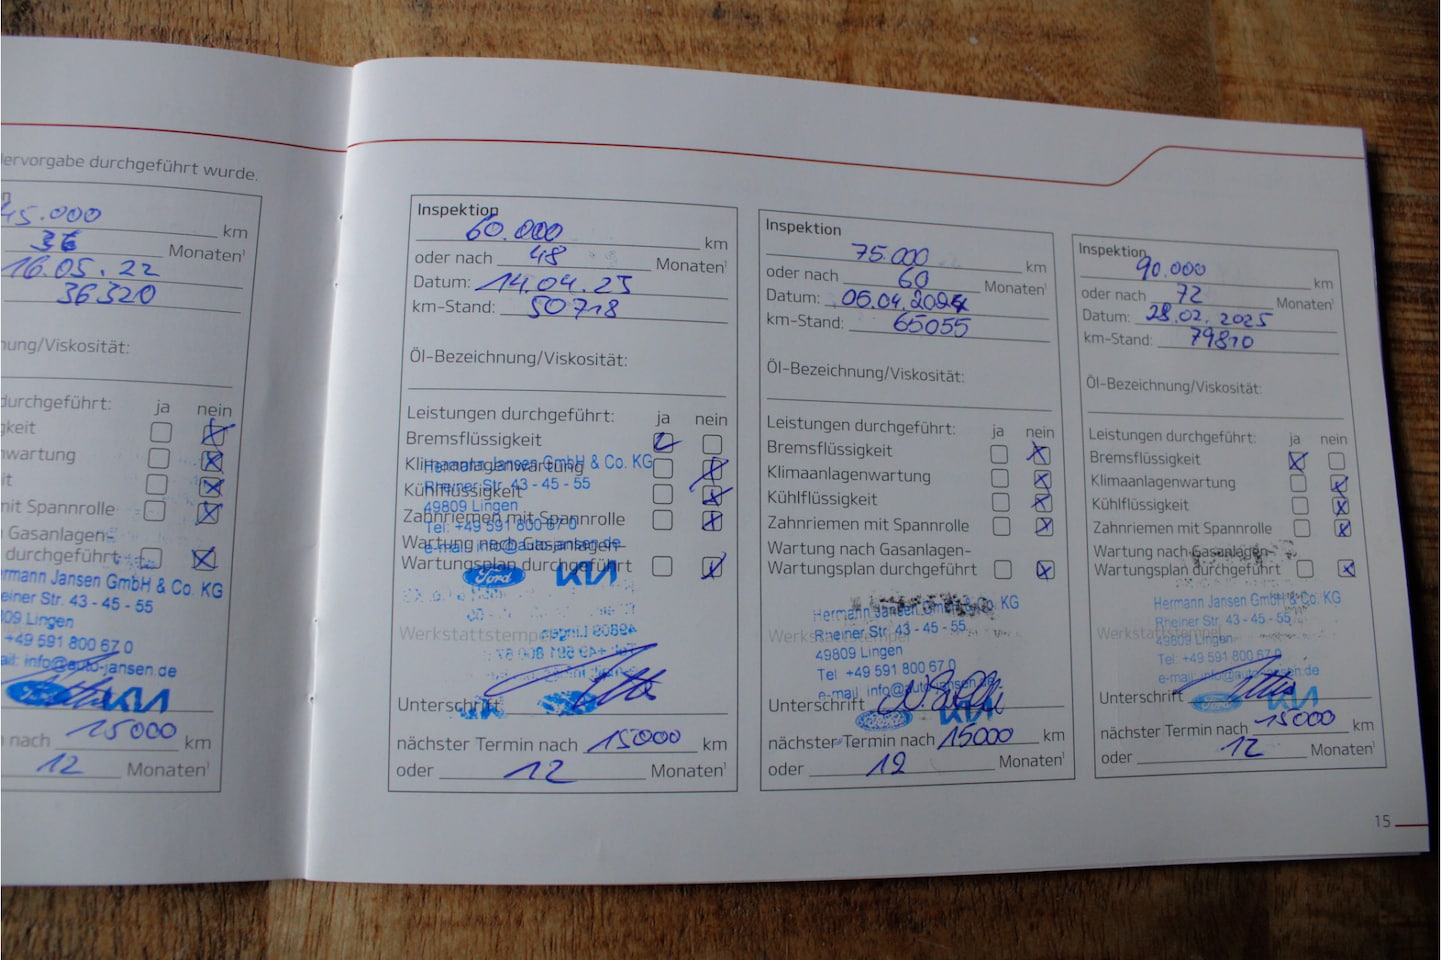 lervorgabe durchgeführt wurde.
45.000 km
36 Monaten¹
16.05.22
36320
nung/Viskosität:
durchgeführt: ja nein
gkeit
nwartung
it
mit Spannrolle
Gasanlagen-
durchgeführt
ermann Jansen GmbH & Co. KG
einer Str. 43 - 45 - 55
809 Lingen
+49 591 800 67 0
ail: info@auto-jansen.de
Ford KIA
nach 15000 km
12 Monaten¹
Inspektion
60.000 km
oder nach 48 Monaten¹
Datum: 14.04.23
km-Stand: 50718
Öl-Bezeichnung/Viskosität:
Leistungen durchgeführt: ja nein
Bremsflüssigkeit
Klimaanlagenwartung
Hermann Jansen GmbH & Co. KG
Rheiner Str. 43 - 45 - 55
Kühlflüssigkeit
49809 Lingen
Zahnriemen mit Spannrolle
Tel: +49 591 800 67 0
Wartung nach Gasanlagen-
e-mail: info@auto-jansen.de
Wartungsplan durchgeführt
Ford KIA
Werkstattstempel
Unterschrift
nächster Termin nach 15000 km
oder 12 Monaten¹
Inspektion
75.000 km
oder nach 60 Monaten¹
Datum: 06.04.2024
km-Stand: 65055
Öl-Bezeichnung/Viskosität:
Leistungen durchgeführt: ja nein
Bremsflüssigkeit
Klimaanlagenwartung
Kühlflüssigkeit
Zahnriemen mit Spannrolle
Wartung nach Gasanlagen-
Wartungsplan durchgeführt
Hermann Jansen GmbH & Co. KG
Werkstattstempel
Rheiner Str. 43 - 45 - 55
49809 Lingen
Tel +49 591 800 67 0
e-mail: info@auto-jansen.de
Unterschrift
Ford KIA
nächster Termin nach 15000 km
oder 12 Monaten¹
Inspektion
90.000 km
oder nach 72 Monaten¹
Datum: 28.02.2025
km-Stand: 79810
Öl-Bezeichnung/Viskosität:
Leistungen durchgeführt: ja nein
Bremsflüssigkeit
Klimaanlagenwartung
Kühlflüssigkeit
Zahnriemen mit Spannrolle
Wartung nach Gasanlagen-
Wartungsplan durchgeführt
Hermann Jansen GmbH & Co. KG
Rheiner Str. 43 - 45 - 55
Werkstattstempel
49809 Lingen
Tel: +49 591 800 67 0
e-mail: info@auto-jansen.de
Unterschrift
Ford KIA
nächster Termin nach 15000 km
oder 12 Monaten¹
15